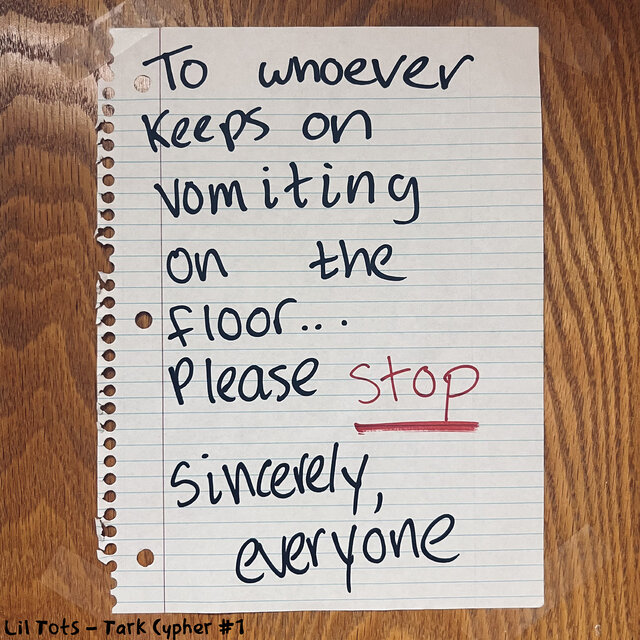 To whoever
keeps on
vomiting
on the
floor...
Please stop
sincerely,
everyone
Lil Tots - Tark Cypher #1